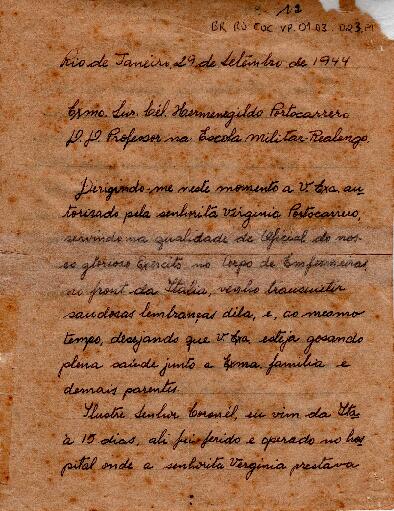 12
BR RJ COC VP.01.03.023.f1
Rio de Janeiro, 29 de Setêmbro de 1944
Exmo. Snr. Cél. Hermenegildo Portocarrero
D.D. Professor na Escola Militar-Realengo.
Dirigindo-me neste momento a V. Exa. au-
torizado pela senhorita Virginia Portocarrero,
servindo na qualidade de Oficial do nos-
so glorioso Exercito no Corpo de Enfermeiras
no front da Italia, venho transmitir
saudosas lembranças dela, e, ao mesmo
tempo, desejando que V. Exa. esteja gosando
plena saúde junto a Exma. familia e
demais parentes.
Ilustre Senhor Coronél, eu vim da Ita-
a 15 dias, ali fui ferido e operado no hos-
pital onde a senhorita Virginia prestava